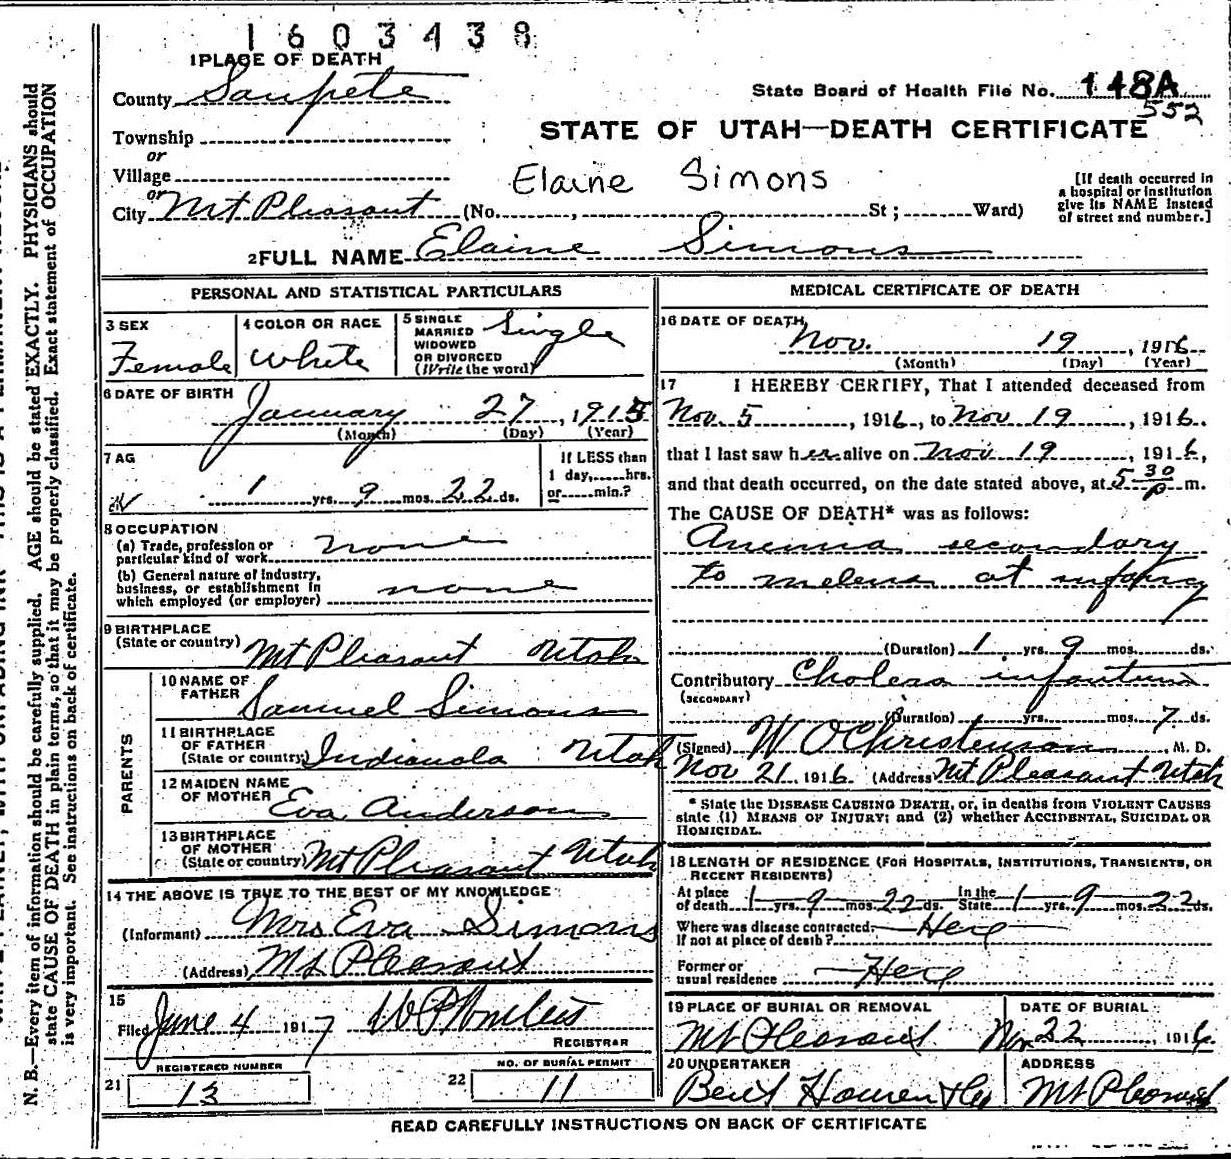 1 6 0 3 4 3 8
1 PLACE OF DEATH
County Sanpete
State Board of Health File No. 148A
552
Township
or
STATE OF UTAH—DEATH CERTIFICATE
Village
or
Elaine Simons
City Mt Pleasant (No. , St ; Ward)
[If death occurred in
a hospital or institution
give its NAME instead
of street and number.]
2 FULL NAME Elaine Simons
PERSONAL AND STATISTICAL PARTICULARS
3 SEX
Female
4 COLOR OR RACE
White
5 SINGLE
MARRIED
WIDOWED
OR DIVORCED
(Write the word)
Single
6 DATE OF BIRTH
January 27, 1915
(Month) (Day) (Year)
7 AG
1 yrs. 9 mos. 22 ds.
If LESS than
1 day, hrs.
or min.?
8 OCCUPATION
(a) Trade, profession or
particular kind of work none
(b) General nature of industry,
business, or establishment in
which employed (or employer) none
9 BIRTHPLACE
(State or country) Mt Pleasant Utah
PARENTS
10 NAME OF
FATHER Samuel Simons
11 BIRTHPLACE
OF FATHER
(State or country) Indianola Utah
12 MAIDEN NAME
OF MOTHER Eva Anderson
13 BIRTHPLACE
OF MOTHER
(State or country) Mt Pleasant Utah
14 THE ABOVE IS TRUE TO THE BEST OF MY KNOWLEDGE
(Informant) Mrs Eva Simons
(Address) Mt Pleasant
15
Filed June 4 1917
REGISTRAR
REGISTERED NUMBER
21 13
NO. OF BURIAL PERMIT
22 11
MEDICAL CERTIFICATE OF DEATH
16 DATE OF DEATH
Nov. 19, 1916
(Month) (Day) (Year)
17 I HEREBY CERTIFY, That I attended deceased from
Nov. 5, 1916, to Nov 19, 1916.
that I last saw her alive on Nov 19, 1916,
and that death occurred, on the date stated above, at 5 30 p m.
The CAUSE OF DEATH* was as follows:
Anemia secondary
to melena at infancy
(Duration) 1 yrs. 9 mos. ds.
Contributory Cholera infantum
(SECONDARY)
(Duration) yrs. mos. 7 ds.
(Signed) W O Christenson, M. D.
Nov 21, 1916 (Address) Mt Pleasant Utah
* State the DISEASE CAUSING DEATH, or, in deaths from VIOLENT CAUSES
state (1) MEANS OF INJURY; and (2) whether ACCIDENTAL, SUICIDAL OR
HOMICIDAL.
18 LENGTH OF RESIDENCE (FOR HOSPITALS, INSTITUTIONS, TRANSIENTS, OR
RECENT RESIDENTS)
At place
of death 1 yrs. 9 mos. 22 ds. In the
State 1 yrs. 9 mos. 22 ds.
Where was disease contracted,
If not at place of death? Here
Former or
usual residence Here
19 PLACE OF BURIAL OR REMOVAL
Mt Pleasant
DATE OF BURIAL
Nov 22, 1916
20 UNDERTAKER
ADDRESS
Mt Pleasant
READ CAREFULLY INSTRUCTIONS ON BACK OF CERTIFICATE
N. B.—Every item of information should be carefully supplied. AGE should be stated EXACTLY. PHYSICIANS should
state CAUSE OF DEATH in plain terms, so that it may be properly classified. Exact statement of OCCUPATION
is very important. See instructions on back of certificate.